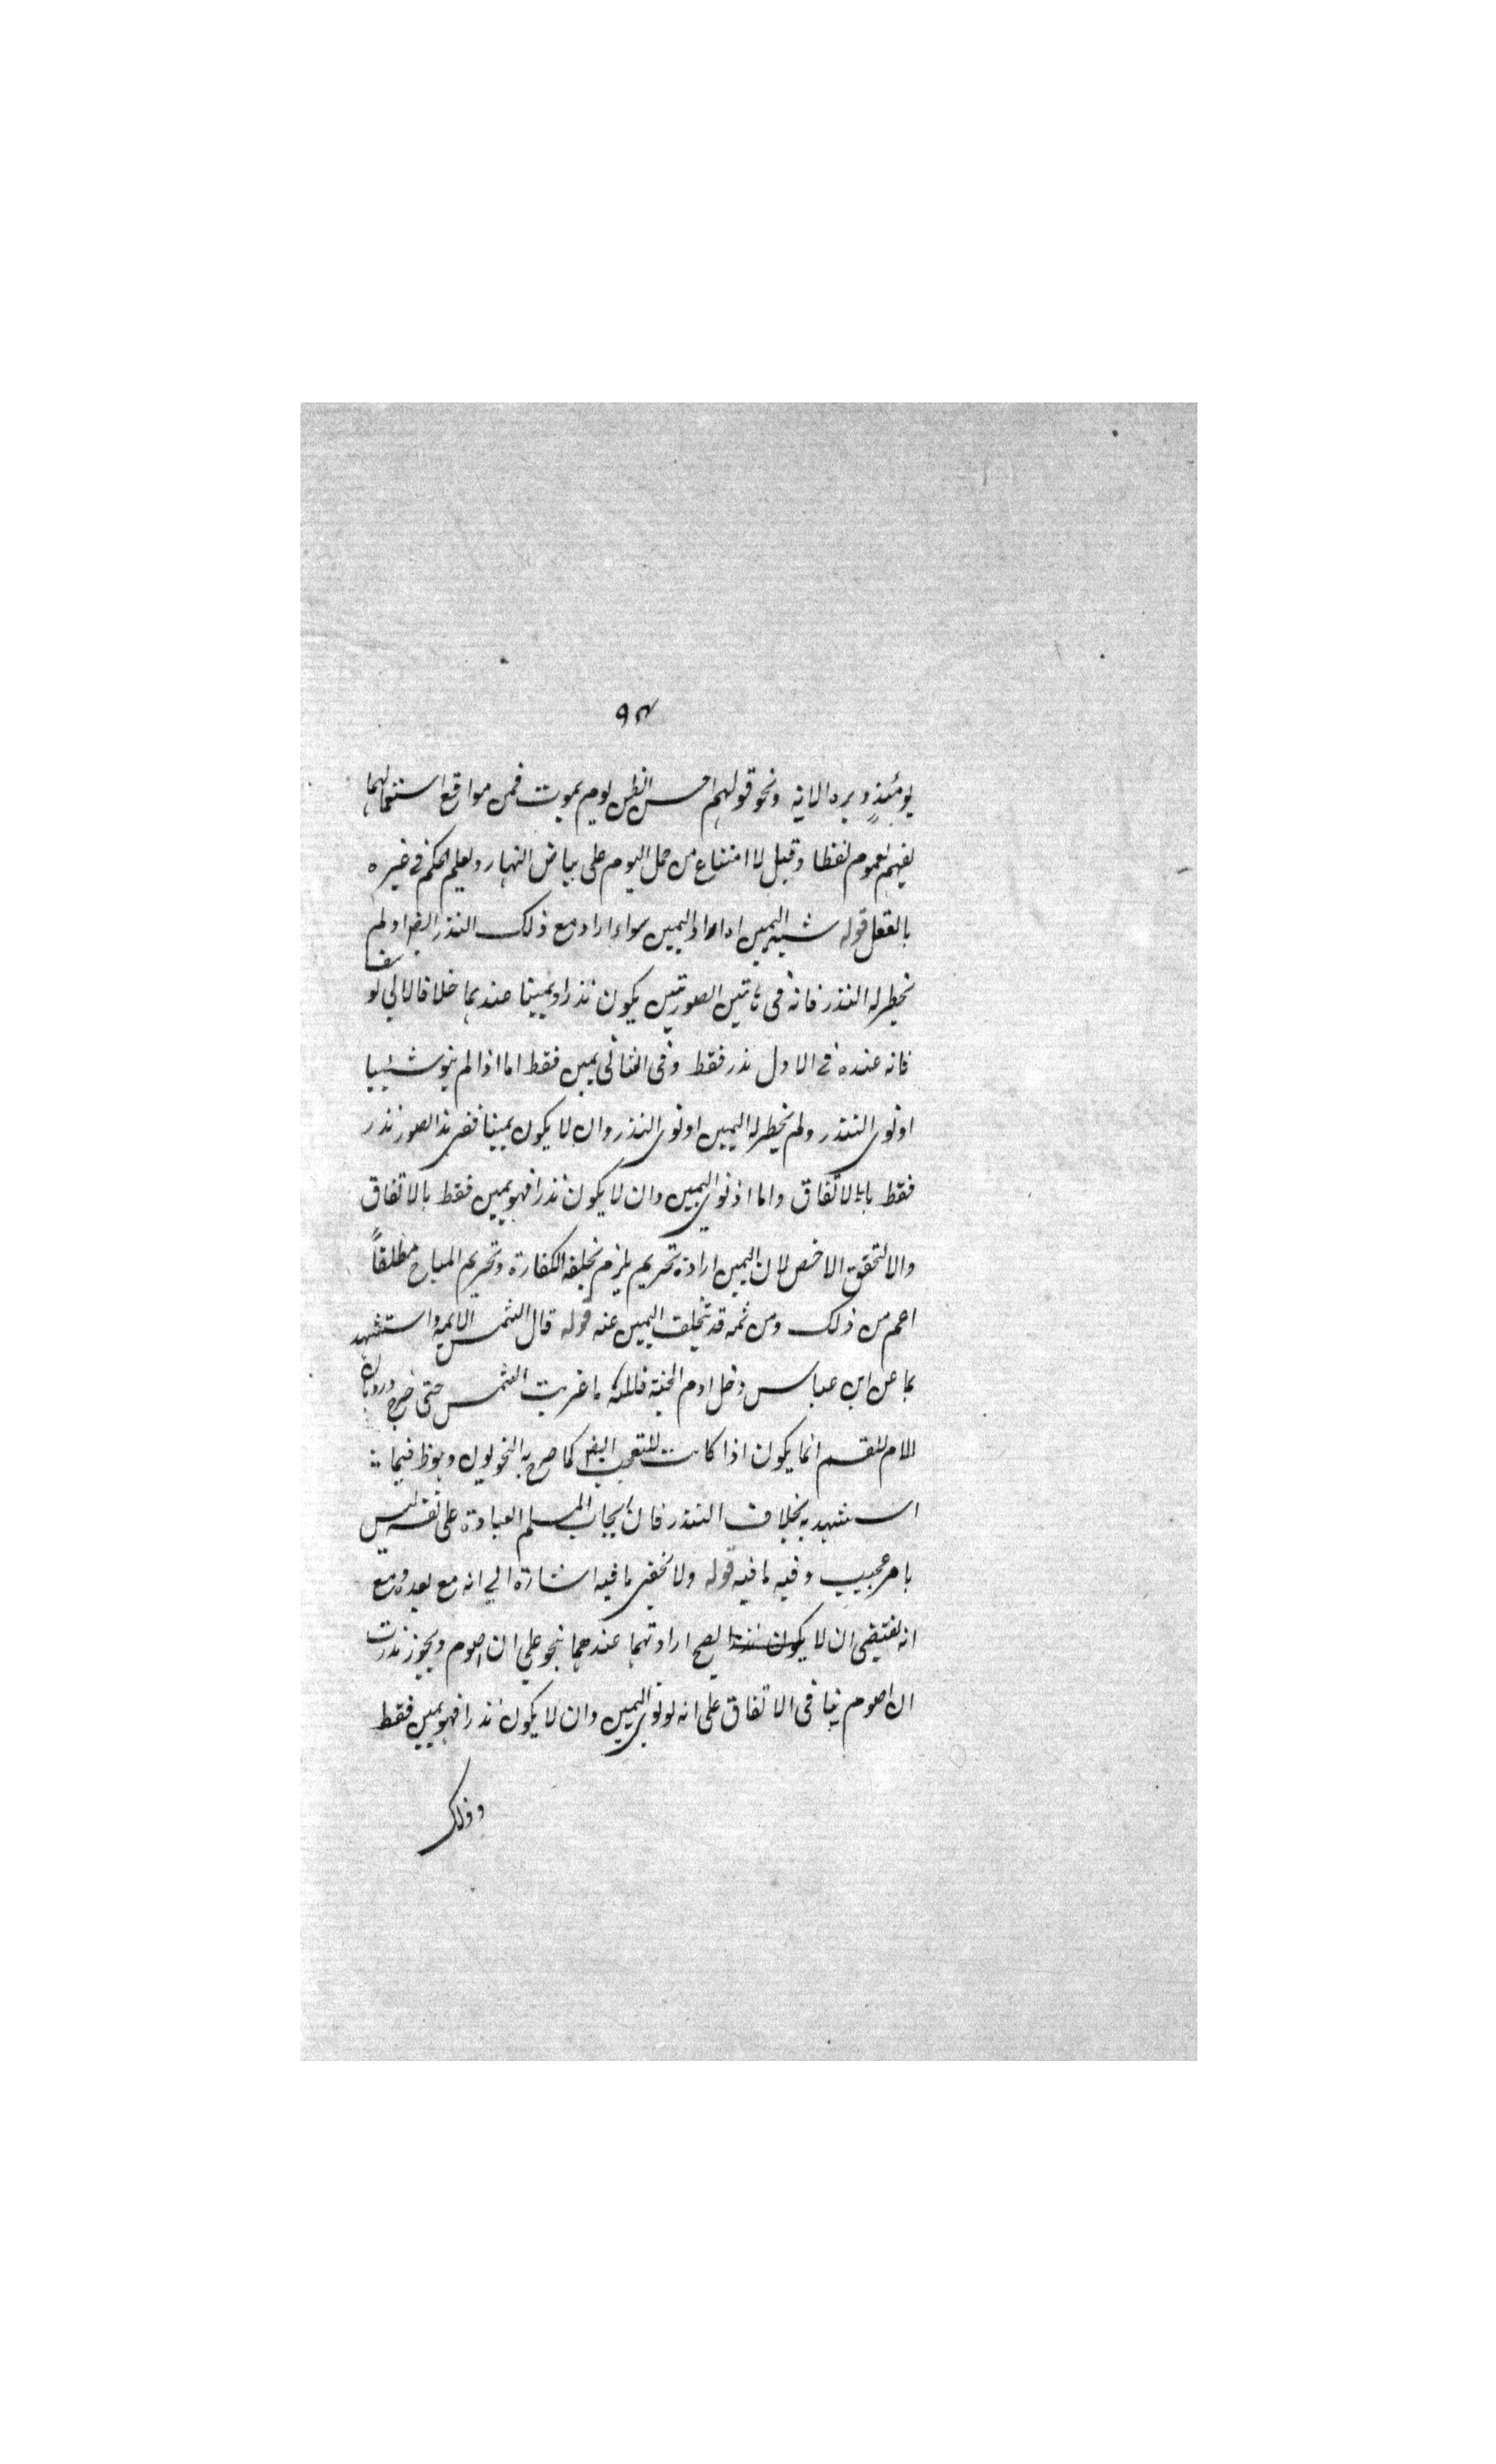 ٩٣
يومئذ وبره الاية ونحو قولهم احسن الظن يوم يموت فمن مواقع استعمالهما
يفهم لعموم لفظا وقيل لا امتناع من حمل اليوم على بياض النهار ويعلم الحكم في غيره
بالعقل قوله اليمين اراد اليمين سواء اراد مع ذلك النذر ايضا ولم
يخطر له النذر فانه في هاتين الصورتين يكون نذرا ويمينا عندهما خلافا لابي
فانه عنده في الاول نذر فقط وفي الثاني يمين فقط اما اذا لم ينو شيئا
او نوى النذر ولم يخطر له اليمين او نوى النذر وان لا يكون يمينا ففي هذا الصور نذر
فقط بالاتفاق واما اذ نوى اليمين وان لا يكون نذرا فهو يمين فقط بالاتفاق
والا لتحقق الاخص لان اليمين ارادة تحريم يلزم بخلفه الكفارة وتحريم المباح مطلقاً
اعم من ذلك ومن ثمه قد تخلف اليمين عنه قوله قال الشمس الايمه واستشهد
بما عن ابن عباس دخل ادم الجنة فلله ما غربت الشمس حتى خرج
اللام للقسم انما يكون اذا كانت للتعجب ايضا كما صرح به النحويون وهو ظ فيما
استشهد به بخلاف النذر فان ايجاب المسلم العبادة على نفسه ليس
بامر عجيب وفيه ما فيه قوله ولا يخفى ما فيه اشارة الي انه مع بعده ومع
انه يقتضي ان لا يصح ارادتهما عندهما بنحو علي ان اصوم ويجوز نذرت
ان اصوم ينافى الاتفاق على انه لو نوى اليمين وان لا يكون نذرا فهو يمين فقط
وذلك